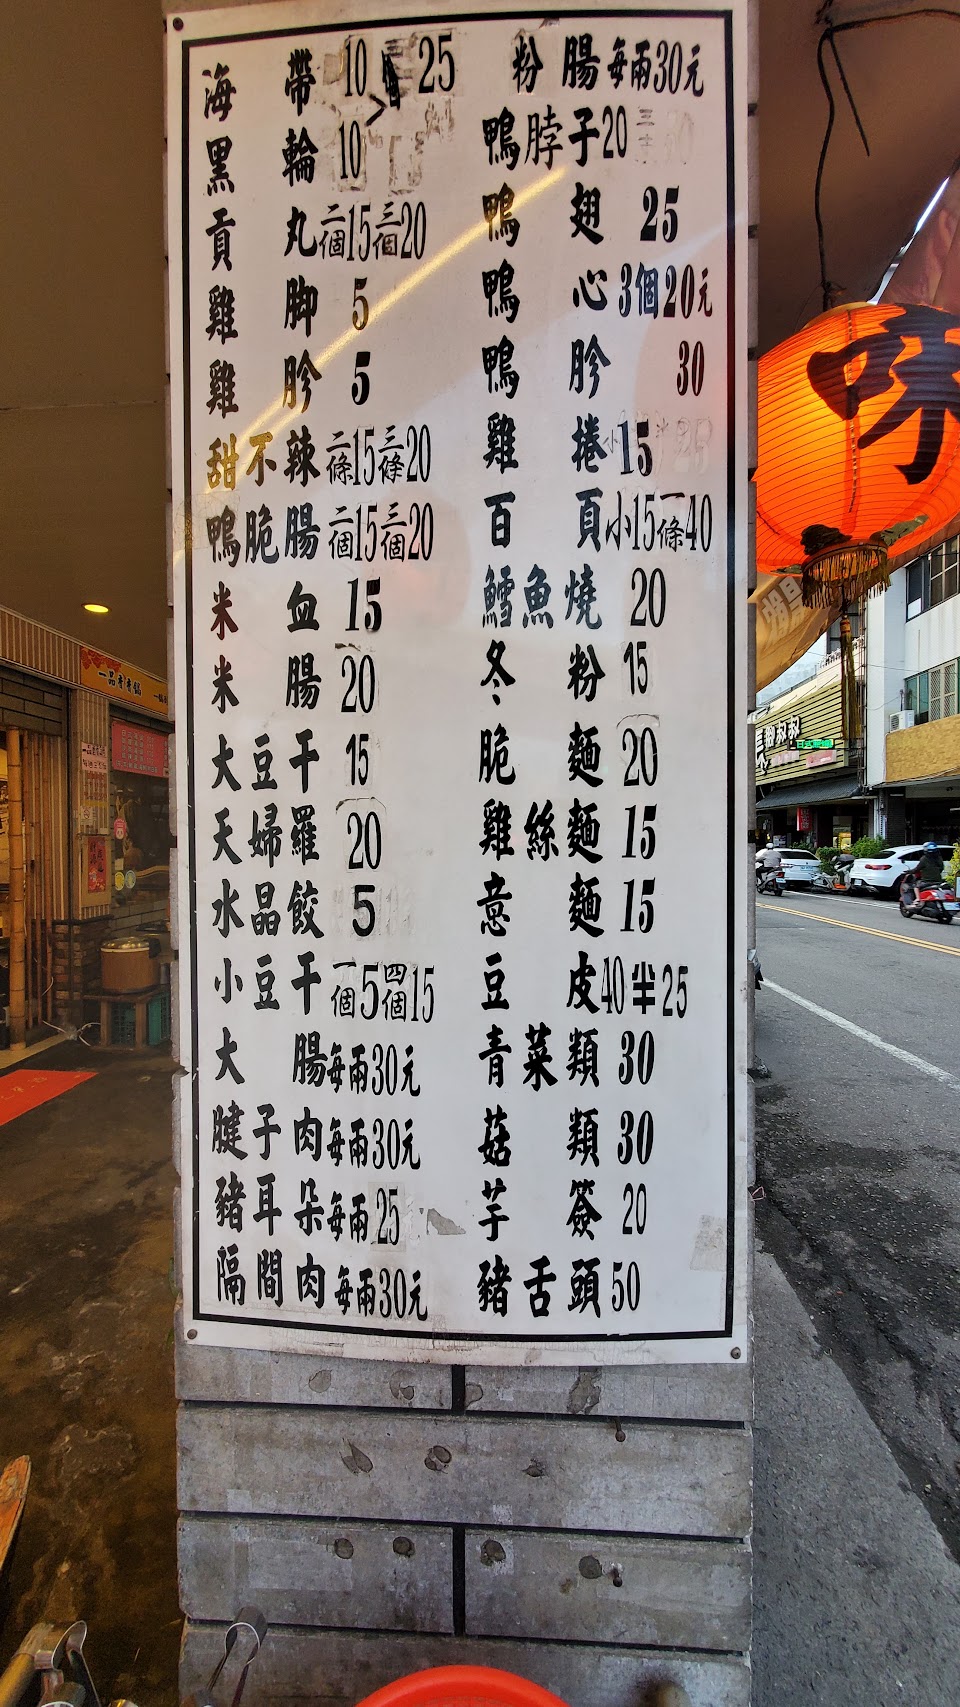 海帶 10 25
黑輪 10
貢丸 二個15 三個20
雞脚 5
雞肣 5
甜不辣 二條15 三條20
鴨脆腸 二個15 三個20
米血 15
米腸 20
大豆干 15
天婦羅 20
水晶餃 5
小豆干 一個5 四個15
大腸 每兩30元
腱子肉 每兩30元
豬耳朵 每兩25
隔間肉 每兩30元
粉腸 每兩30元
鴨脖子 20
鴨翅 25
鴨心 3個20元
鴨肣 30
雞捲 15
百頁 小15 一條40
鱈魚燒 20
冬粉 15
脆麵 20
雞絲麵 15
意麵 15
豆皮 40 半25
青菜類 30
菇類 30
芋簽 20
豬舌頭 50
味
一品香香鍋